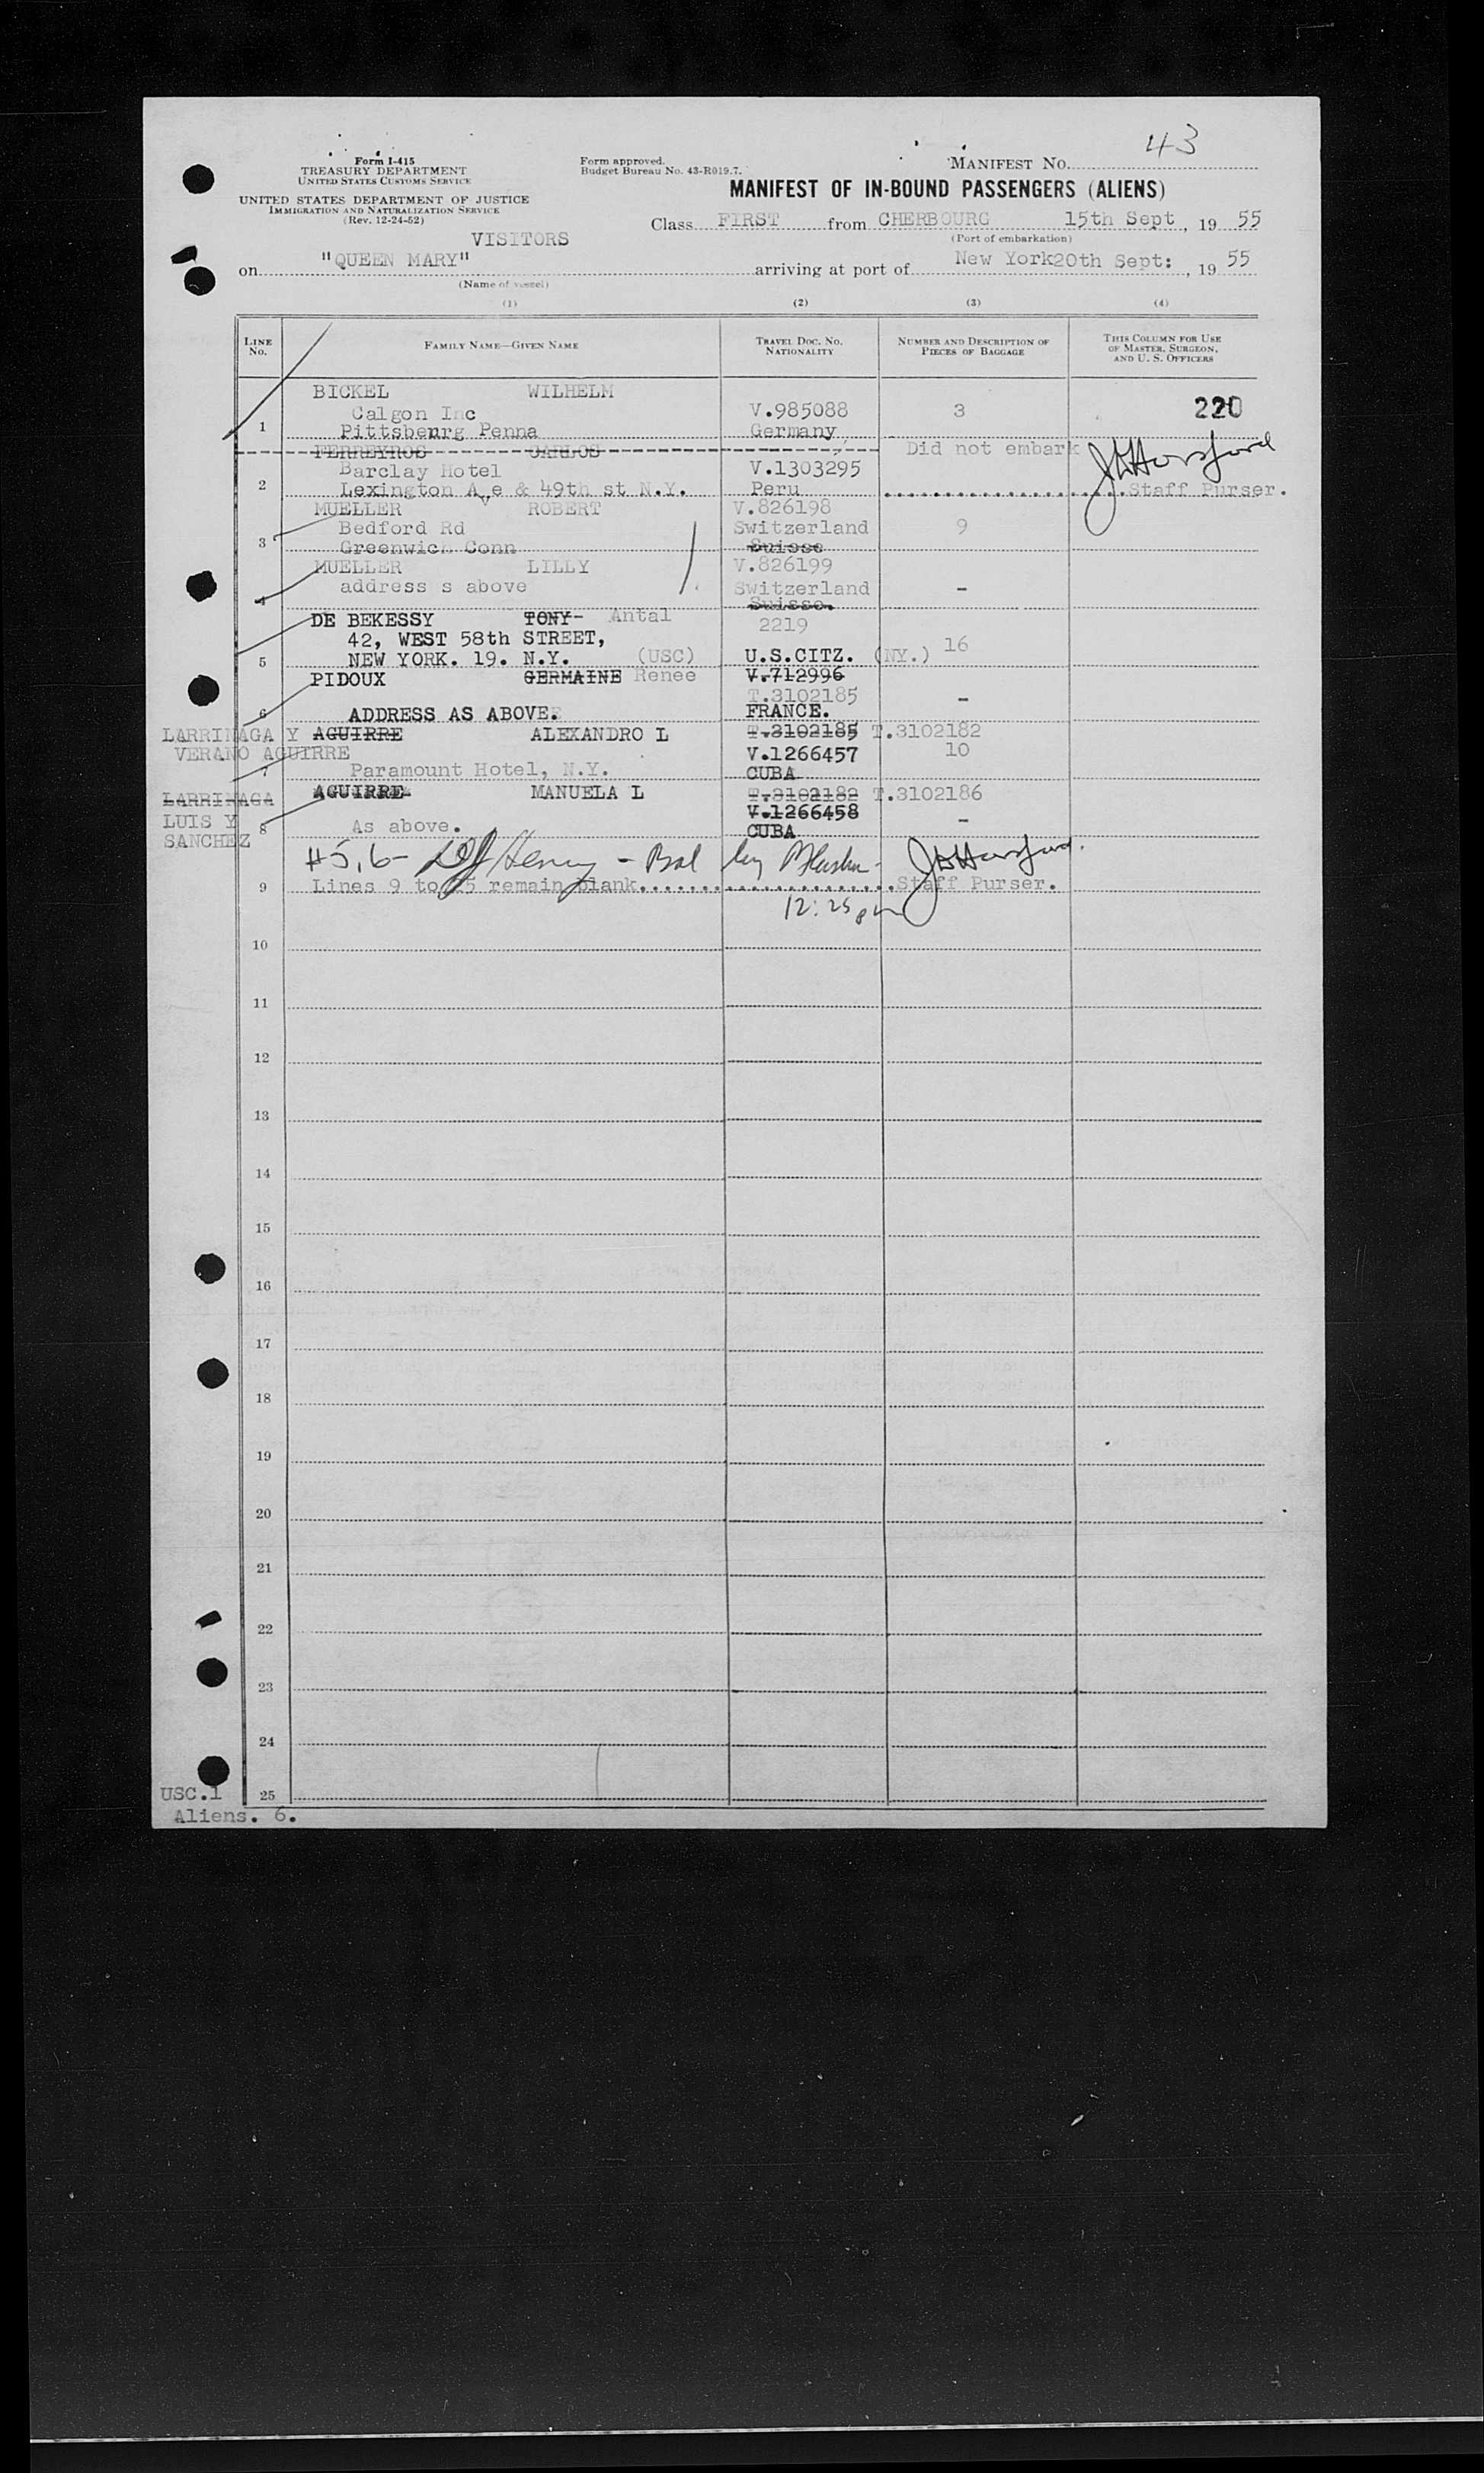 43
Form I-415
TREASURY DEPARTMENT
UNITED STATES CUSTOMS SERVICE
UNITED STATES DEPARTMENT OF JUSTICE
IMMIGRATION AND NATURALIZATION SERVICE
(Rev. 12-24-52)
Form approved.
Budget Bureau No. 43-R019.7.
MANIFEST No.
MANIFEST OF IN-BOUND PASSENGERS (ALIENS)
Class FIRST from CHERBOURG 15th Sept, 19 55
(Port of embarkation)
VISITORS
on "QUEEN MARY" arriving at port of New York 20th Sept: , 19 55
(Name of vessel)
(1) (2) (3) (4)
LINE No. FAMILY NAME—GIVEN NAME TRAVEL DOC. NO. NATIONALITY NUMBER AND DESCRIPTION OF PIECES OF BAGGAGE THIS COLUMN FOR USE OF MASTER, SURGEON, AND U. S. OFFICERS
BICKEL WILHELM
Calgon Inc V.985088 3 220
1 Pittsbeurg Penna Germany
FERREYROS CARLOS Did not embark
Barclay Hotel V.1303295
2 Lexington Ave & 49th st N.Y. Peru Staff Purser.
MUELLER ROBERT V.826198
Bedford Rd Switzerland 9
3 Greenwich Conn Suisse
MUELLER LILLY V.826199
address s above Switzerland -
4 Suisse.
DE BEKESSY TONY- Antal 2219
42, WEST 58th STREET, 16
5 NEW YORK. 19. N.Y. (USC) U.S.CITZ. (NY.)
PIDOUX GERMAINE Renee V.712996
T.3102185 -
6 ADDRESS AS ABOVE. FRANCE.
LARRINAGA Y AGUIRRE ALEXANDRO L T.3102185 T.3102182
VERANO AGUIRRE V.1266457 10
7 Paramount Hotel, N.Y. CUBA
LARRINAGA AGUIRRE MANUELA L T.3102182 T.3102186
LUIS Y V.1266458 -
8 As above. CUBA
SANCHEZ
#5,6- Henry - by
9 Lines 9 to 25 remain blank. Staff Purser.
12:25 pm
10
11
12
13
14
15
16
17
18
19
20
21
22
23
24
25
USC.1
Aliens. 6.